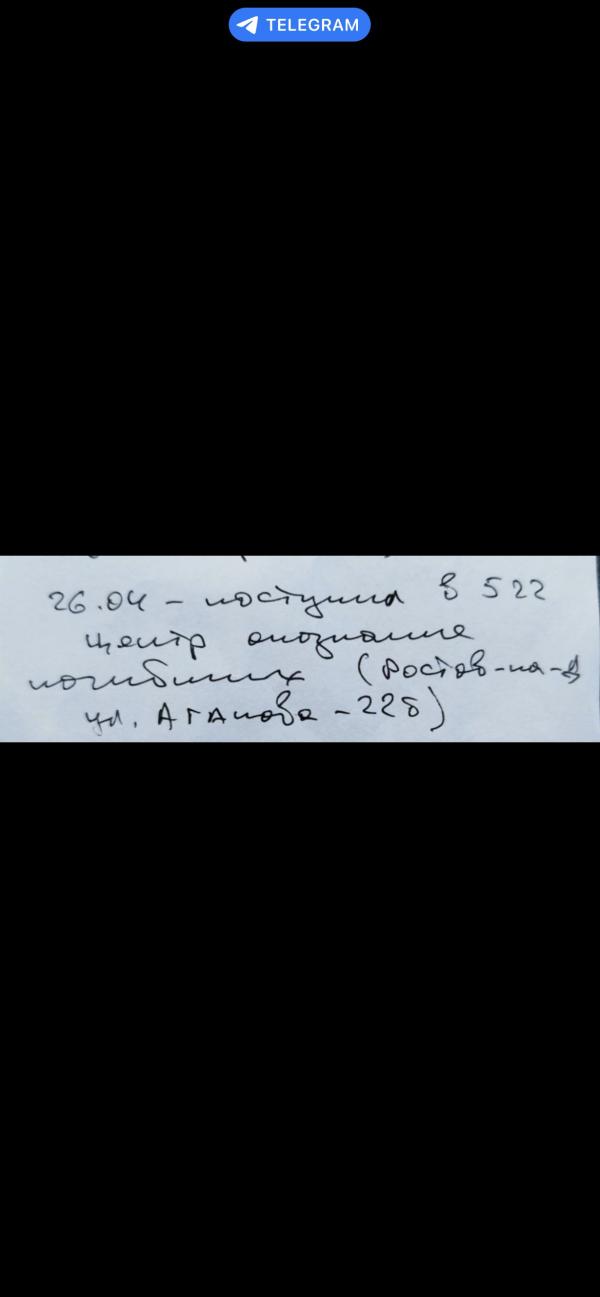 TELEGRAM
26.04 - поступил в 522
центр опознание
погибших (Ростов-на-Д
ул. Аганова - 22б)